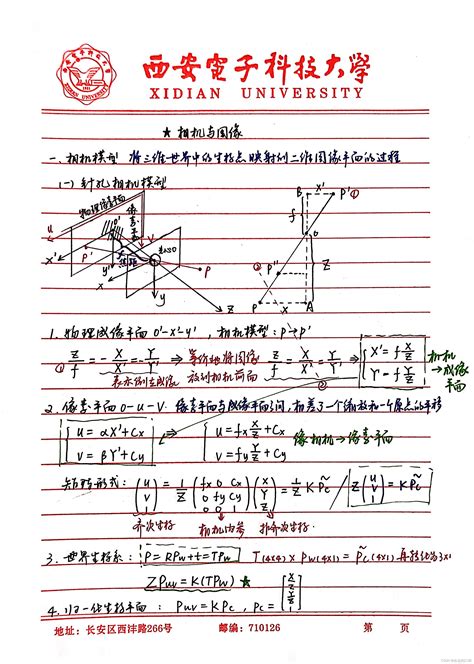 西安电子科技大学
XIDIAN UNIVERSITY
★ 相机与图像
一、相机模型 将三维世界中的坐标点映射到二维图像平面的过程
(一) 针孔相机模型
物理成像平面
像素平面
焦距
u
o'
x'
y'
P'
x
y
z
P
B
x'
P' ①
f
o
P''
②
P
x
A
z
1. 物理成像平面 O'-X'-Y', 相机模型: P→P'
① Z/f = -X/X' = -Y/Y' ⇒ 等价地将图像放到相机前面 Z/f = X/X' = Y/Y' ⇒ { X' = f X/Z
Y' = f Y/Z
相机→成像平面
表示倒立成像
②
2. 像素平面 O-U-V. 像素平面与成像平面之间, 相差了一个缩放和一个原点的平移
{ u = αX'+Cx
v = βY'+Cy
⇒ { u = fx X/Z + Cx
v = fy Y/Z + Cy
像相机→像素平面
矩阵形式: (u v 1) = 1/Z (fx 0 Cx 0 fy Cy 0 0 1) (X Y Z) = 1/Z K P̃c / Z (u v 1) = K P̃c
齐次坐标
相机内参
非齐次坐标
3. 世界坐标系: P = RPw+t = TPw T(4x4) x Pw(4x1) = P̃c (4x1) 再转化为3x1
ZPuv = K(TPw) ★
4. 归一化坐标平面: Puv = KPc, Pc = [X/Z Y/Z 1]
地址: 长安区西沣路266号 邮编: 710126 第 页